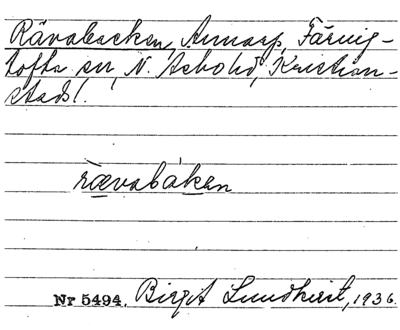 Rävabacken, Annarp, Färing-
tofta sn, N. Åsbo hd, Kristian-
stads l.
rævabákan
Nr 5494. Birgit Lundkvist, 1936.